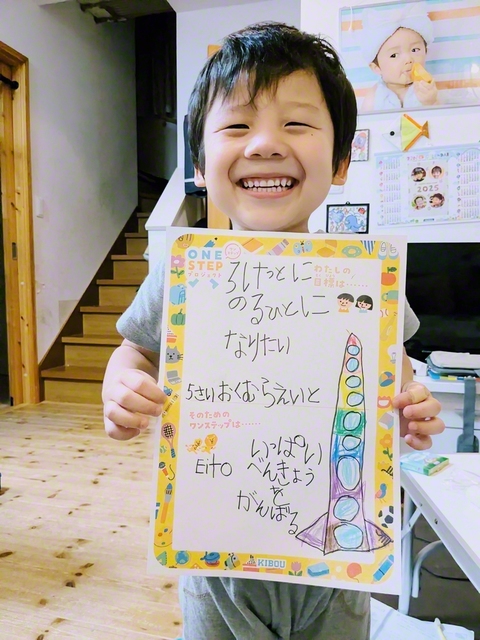 ONE
STEP
プロジェクト
わたしの
目標は……
ろけっとに
のるひとに
なりたい
5さいおくむらえいと
そのための
ワンステップは……
Eito
いっぱい
べんきょう
を
がんばる
KIBOU
2025
KIBOU